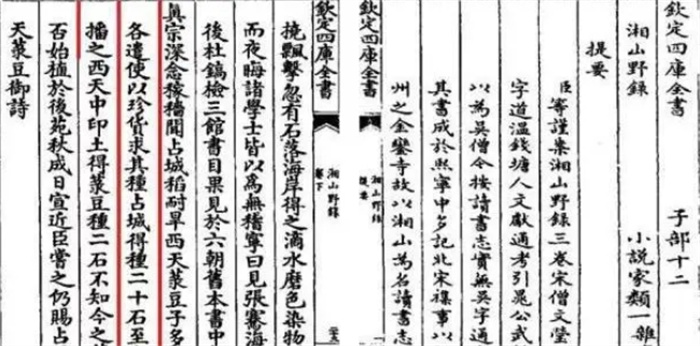 欽定四庫全書 子部十二
湘山野錄 小說家類一雜
提要
臣等謹案湘山野錄三卷宋僧文瑩
字道溫錢塘人文獻通考引晁公武
以為吳僧今按讀書志實無吳字通
其書成於熙寧中多記北宋襍事以
州之金鑾寺故以湘山為名讀書志
欽定四庫全書 湘山野錄 提要
欽定四庫全書 湘山野錄 卷下
撓飄擊忽有石落海岸得之滴水磨色染物
而夜晦諸學士皆以為無稽寧曰見張騫海
後杜鎬檢三館書目果見於六朝舊本書中
真宗深念稼穡聞占城稻耐旱西天菉豆子多
各遣使以珍貨求其種占城得種二十石至
播之西天中印土得菉豆種二石不知今之
否始植於後苑秋成日宣近臣嘗之仍賜占
天菉豆御詩